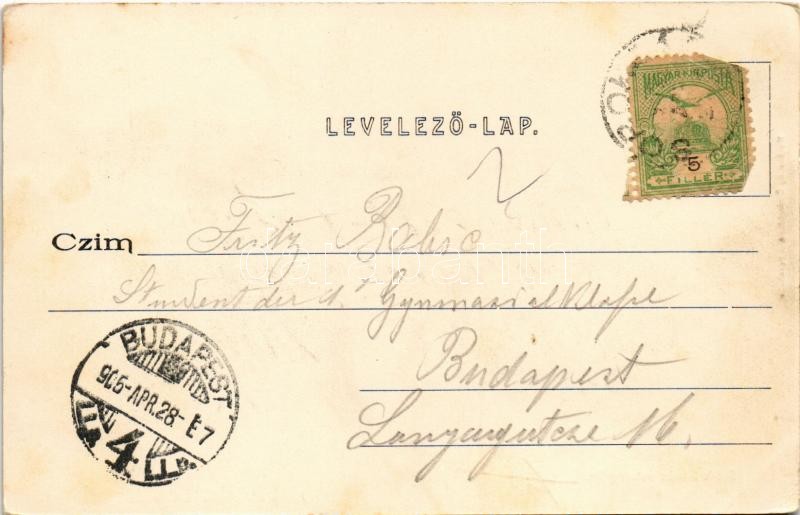 LEVELEZŐ-LAP.
MAGYAR KIR. POSTA
5
FILLÉR
Czim Fritz Babic
Student der Gymnasialklaße
Budapest
16.
BUDAPEST
905-APR.28- E7
4
darabanth